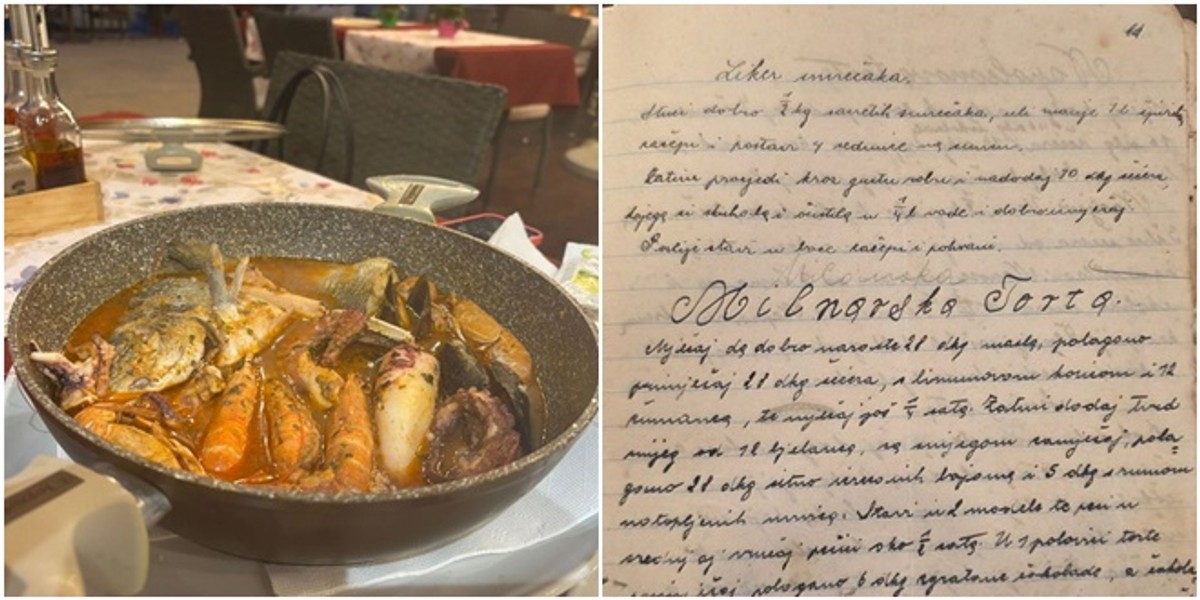 14
Liker smrečaka.
Stuci dobro ½ kg smrekah smrečaka, uli manje 1 l špirita
začepi i postavi 4 sedmice na suncu.
Zatim procjedi kroz gustu robu i nadodaj 70 dkg šećera,
kojega si skuhala i čistila u ¼ l vode i dobro
Poslije stavi u boce začepi i pohrani.
Milnarska Torta.
Mješaj da dobro naraste 28 dkg masla, polagano
primješaj 28 dkg šećera, s limunovom koricom i 12
žumanca, te mješaj još ½ sata. Zatim dodaj tvrd
snijeg od 12 bjelanca, sa snijegom zamješaj, pola
gano 28 dkg sitno bajama i 5 dkg s rumom
natopljenih mrvica. Stavi u 2 modele te peci u
srednjoj vrućoj peći oko ½ sata. U 1 polovici torte
polagano 6 dkg čokolade, a